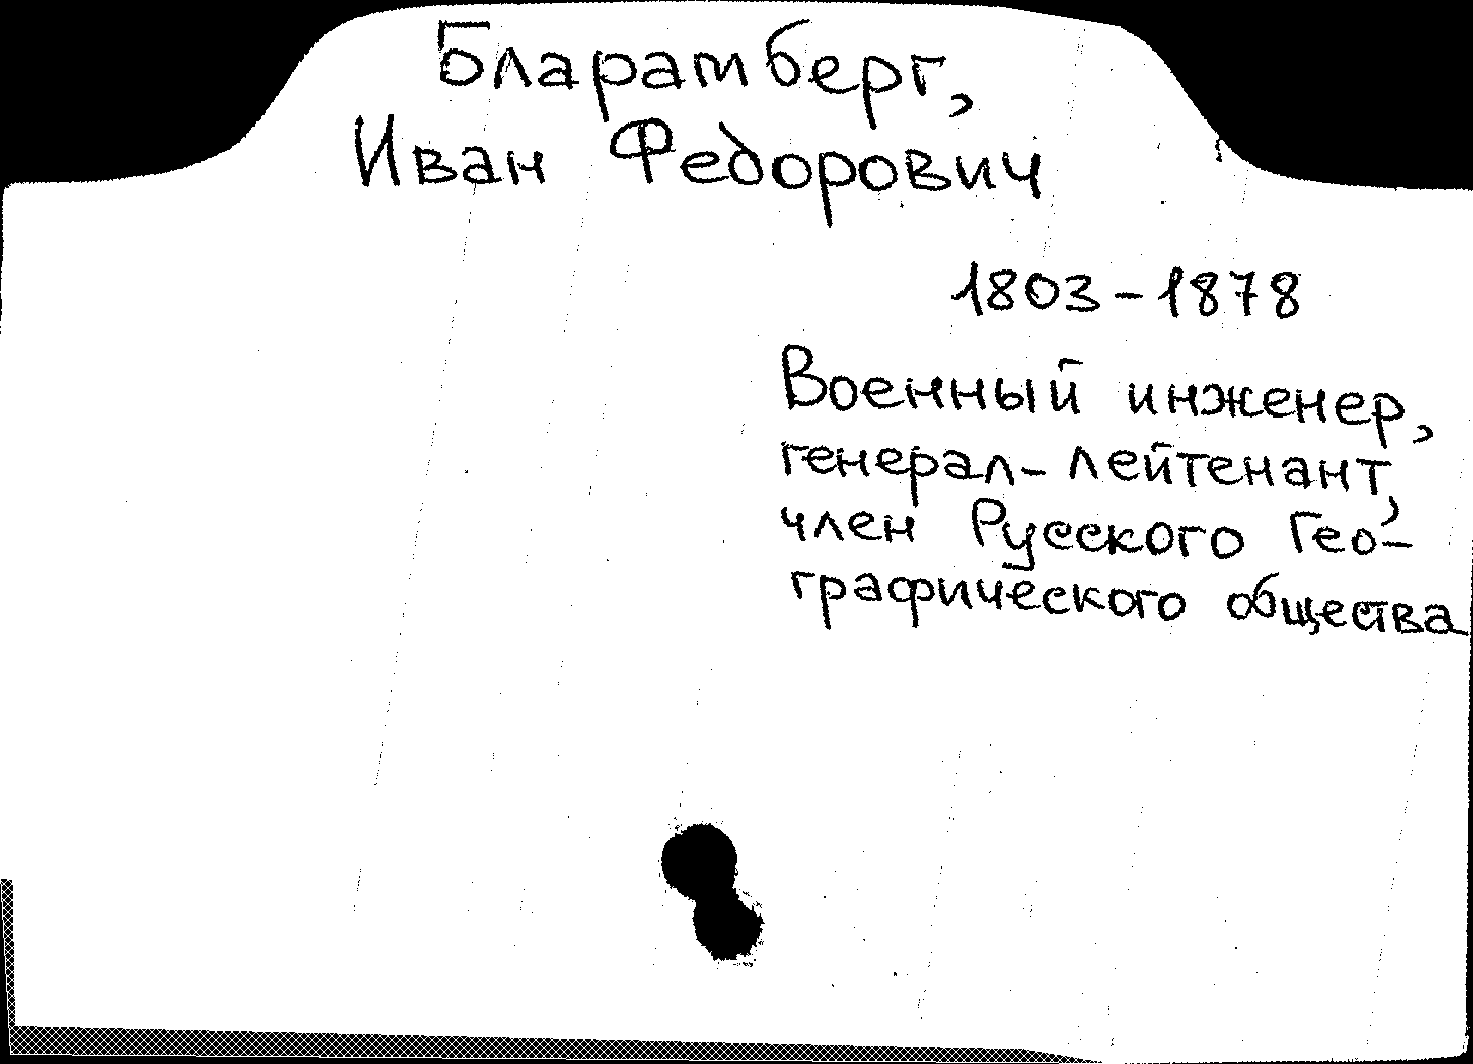 Бларамберг,
Иван Федорович
1803-1878
Военный инженер,
генерал-лейтенант,
член Русского Гео-
графического общества